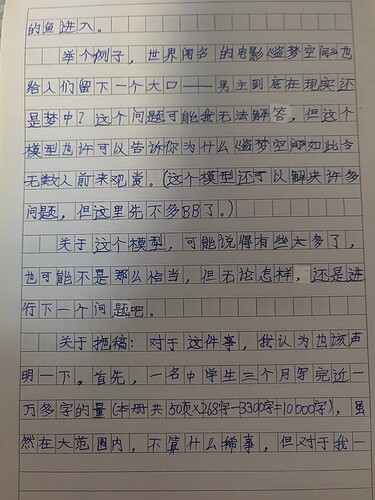 的鱼进入。
举个例子，世界闻名的电影《盗梦空间》也
给人们留下一个大口——男主到底在现实还
是梦中？这个问题可能我无法解答，但这个
模型也许可以告诉你为什么《盗梦空间》如此令
无数人前来观赏。(这个模型还可以解决许多
问题，但这里先不多BB了。)
关于这个模型，可能说得有些太多了，
也可能不是那么恰当，但无论怎样，还是进
行下一个问题吧。
关于拖稿：对于这件事，我认为也该声
明一下。首先，一名中学生三个月写完近一
万多字的量(本册共50页×268字-3300字=10000字)，虽
然在大范围内，不算什么稀事，但对于我一